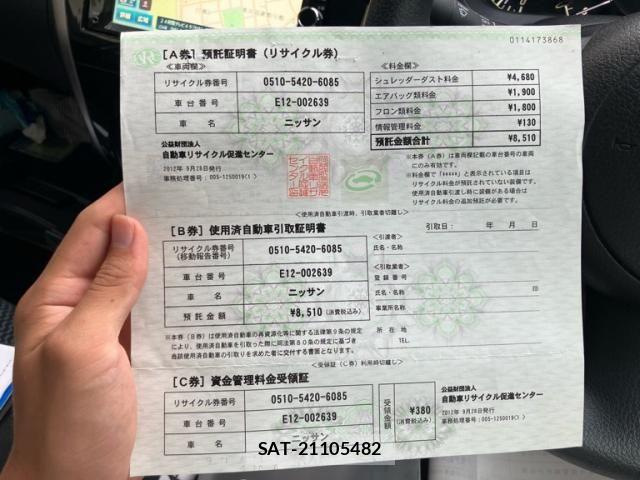 0114173868
[A券] 預託証明書（リサイクル券）
≪車両欄≫
リサイクル券番号 0510-5420-6085
車台番号 E12-002639
車名 ニッサン
≪料金欄≫
シュレッダーダスト料金 ¥4,680
エアバッグ類料金 ¥1,900
フロン類料金 ¥1,800
情報管理料金 ¥130
預託金額合計 ¥8,510
公益財団法人
自動車リサイクル促進センター
2012年 9月28日発行
事務処理番号：005-1250019(1 )
※本券（A券）は車両欄記載の車台番号の車両
にのみ有効です。
※料金欄で「*****」と表示されている項目は
リサイクル料金が預託されていない装備です。
使用済自動車引渡し時に装備がある場合は
リサイクル料金の追加預託が必要です。
＜使用済自動車引渡時、引取業者切離し＞
[B券] 使用済自動車引取証明書
引取日： 年 月 日
リサイクル券番号
(移動報告番号) 0510-5420-6085
車台番号 E12-002639
車名 ニッサン
預託金額 ¥8,510 (消費税込み)
＜引渡者＞
氏名・名称
＜引取業者＞
登録番号
氏名・名称 印
事業所名称
所在地
TEL.
※本券（B券）は使用済自動車の再資源化等に関する法律第9条の規定
により、使用済自動車を引取った際に同法第80条の規定に基づき
当該使用済自動車の引取りを求めた者に交付する書面となります。
＜受領証（C券）利用時切離し＞
[C券] 資金管理料金受領証
リサイクル券番号 0510-5420-6085
車台番号 E12-002639
車名 ニッサン
受領金額 ¥380
(消費税込み)
公益財団法人
自動車リサイクル促進センター
2012年 9月28日発行
事務処理番号：005-1250019(1 )
SAT-21105482